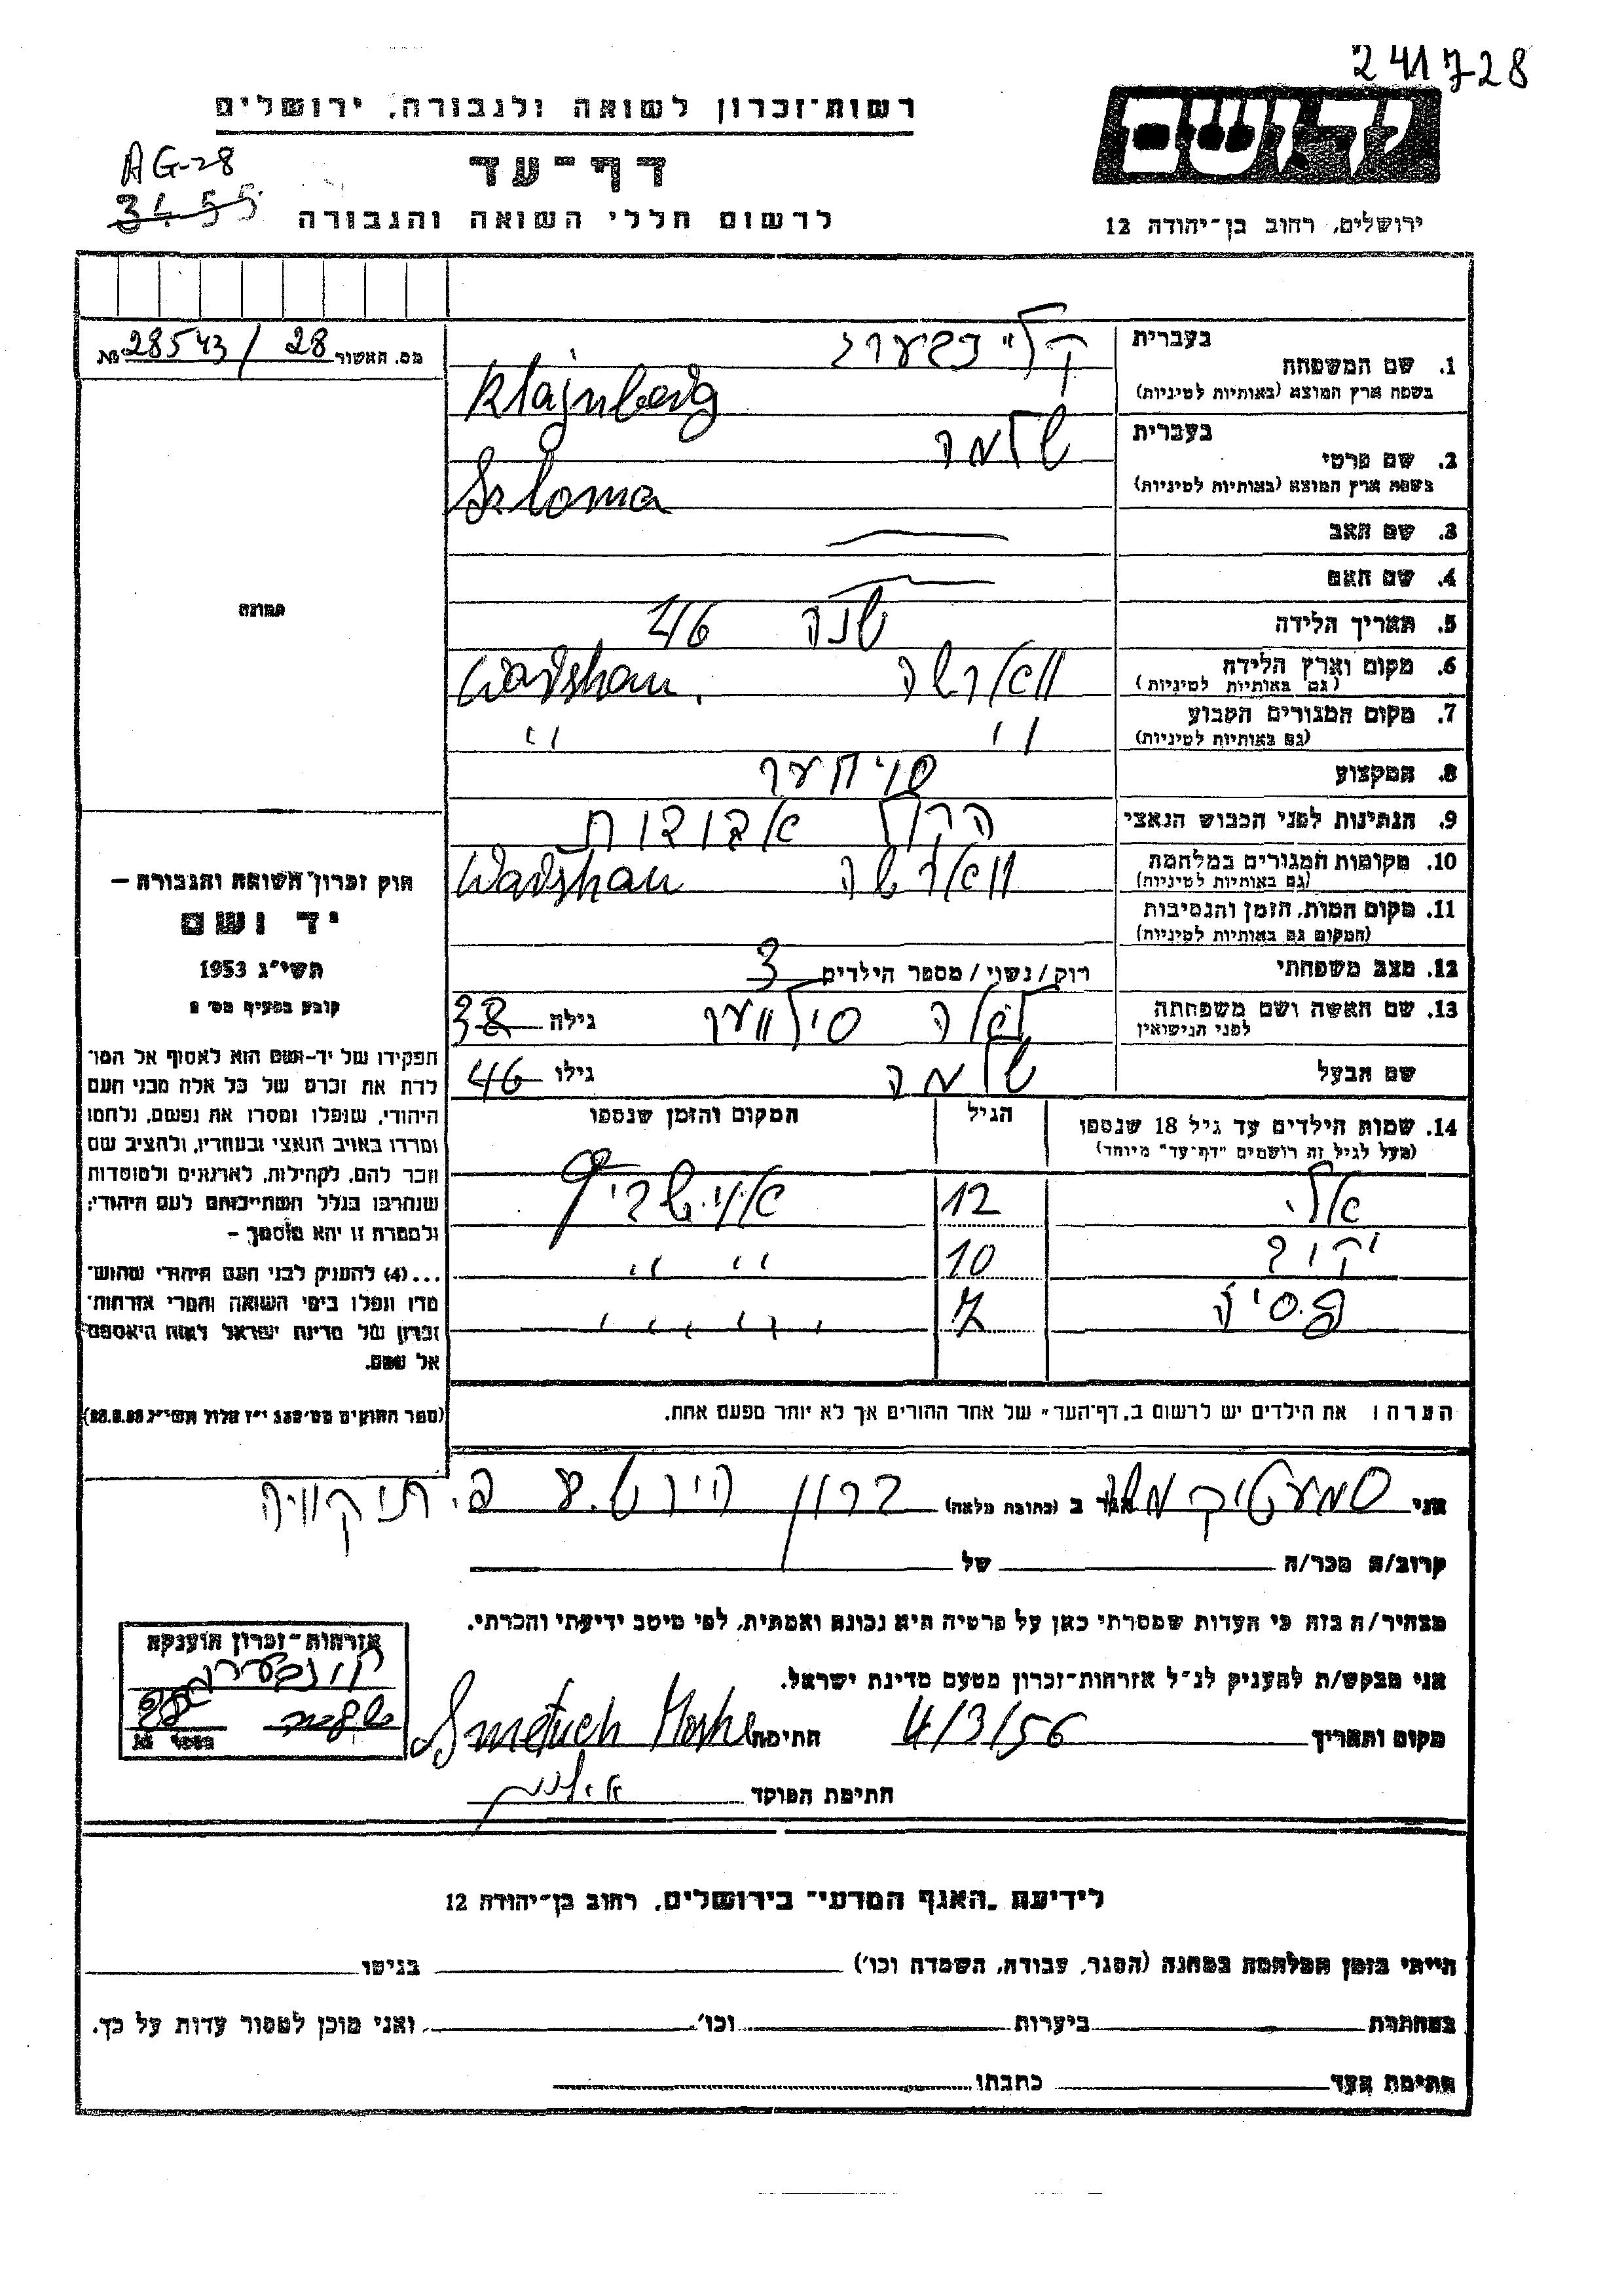 241728
רשות־זכרון לשואה ולגבורה, ירושלים
יד ושם
AG-28
דף־עד
3455
לרשום חללי השואה והגבורה
ירושלים, רחוב בן־יהודה 12
מס. האשור 28 / 28543 №
בעברית
1. שם המשפחה
בשפת ארץ המוצא (באותיות לטיניות)
קליינבערג
Klajnberg
בעברית שלמה
2. שם פרטי
בשפת ארץ המוצא (באותיות לטיניות)
Szloma
3. שם האב
4. שם האם
5. תאריך הלידה שנה 46
6. מקום וארץ הלידה ווארשה Warshau.
(גם באותיות לטיניות)
7. מקום המגורים הקבוע " "
(גם באותיות לטיניות)
8. המקצוע סוחער
9. הנתינות לפני הכבוש הנאצי
10. מקומות המגורים במלחמה ווארשה Warshau
(גם באותיות לטיניות)
11. מקום המות, הזמן והנסיבות
(המקום גם באותיות לטיניות)
12. מצב משפחתי רוק/נשוי/מספר הילדים 3
13. שם האשה ושם משפחתה
לפני הנישואין
לאה סילווער גילה 38
שם הבעל שלמה גילו 46
14. שמות הילדים עד גיל 18 שנספו הגיל המקום והזמן שנספו
(מעל לגיל זה רושמים "דף־עד" מיוחד)
12
10 " "
7
הערה: את הילדים יש לרשום ב„דף־העד" של אחד ההורים אך לא יותר מפעם אחת.
תמונה
חוק זכרון השואה והגבורה –
יד ושם
תשי"ג 1953
קובע בסעיף מס' 2
תפקידו של יד־ושם הוא לאסוף אל המו־
לדת את זכרם של כל אלה מבני העם
היהודי, שנפלו ומסרו את נפשם, נלחמו
ומרדו באויב הנאצי ובעוזריו, ולהציב שם
וזכר להם, לקהילות, לארגונים ולמוסדות
שנחרבו בגלל השתייכותם לעם היהודי;
ולמטרה זו יהא מוסמך –
...(4) להעניק לבני העם היהודי שהוש־
מדו ונפלו בימי השואה והמרי אזרחות־
זכרון של מדינת ישראל לאות היאספם
אל עמם.
(ספר החוקים מס' 132 י"ז אלול תשי"ג 28.8.53)
אני סמעטיק משה הגר ב (כתובת מלאה) פ. תיקוויה
קרוב/ה מכר/ה של
מצהיר/ה בזה כי העדות שמסרתי כאן על פרטיה היא נכונה ואמתית, לפי מיטב ידיעתי והכרתי.
אני מבקש/ת להעניק לנ"ל אזרחות־זכרון מטעם מדינת ישראל.
מקום ותאריך 4/3/56 חתימה Smetuch Moshe
חתימת הפוקד
אזרחות־זכרון הוענקה
לידיעת „האגף המדעי" בירושלים, רחוב בן־יהודה 12
הייתי בזמן המלחמה במחנה (הסגר, עבודה, השמדה וכו') בגיטו
במחתרת ביערות וכו' ואני מוכן למסור עדות על כך.
חתימת העד כתבתו